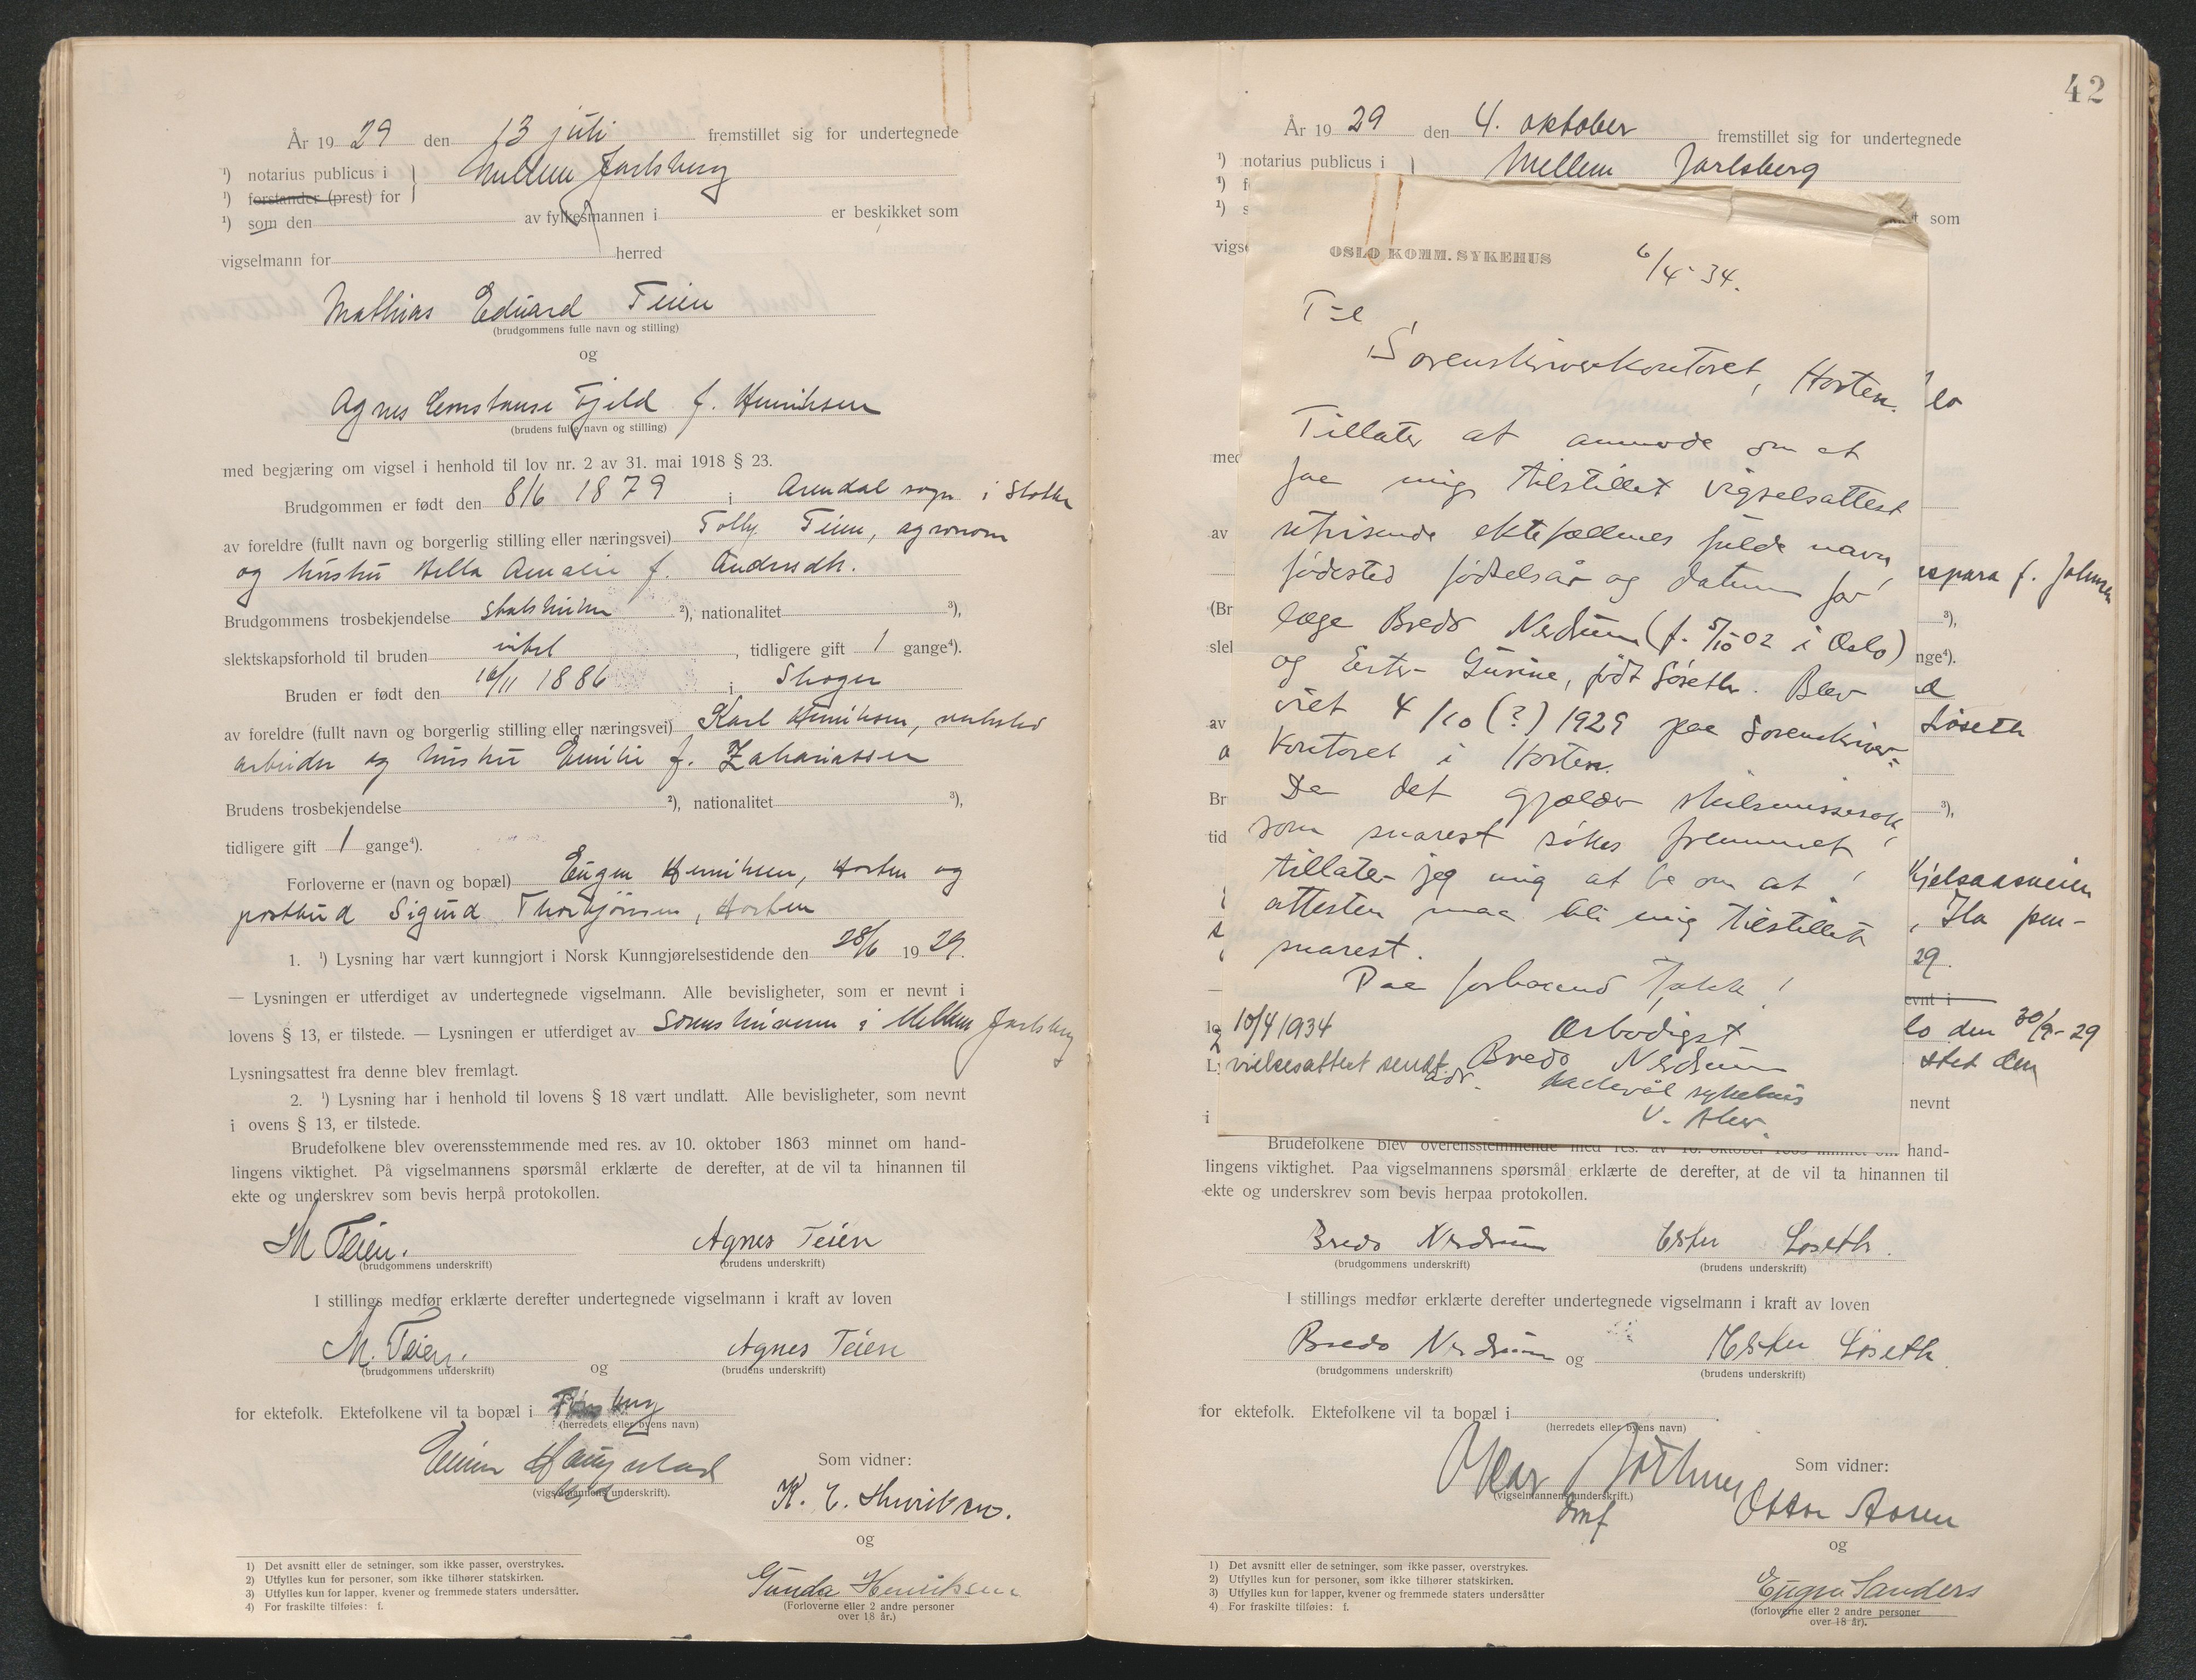 År 19 29 den 13 juli fremstillet sig for undertegnede
¹) notarius publicus i } Mellem Jarlsberg
¹) forstander (prest) for
¹) som den av fylkesmannen i er beskikket som
vigselmann for herred
Mathias Eduard Teien
(brudgommens fulle navn og stilling)
og
Agnes Constanse Fjeld f. Henriksen
(brudens fulle navn og stilling)
med begjæring om vigsel i henhold til lov nr. 2 av 31. mai 1918 § 23.
Brudgommen er født den 8/6 1879 i Arendal sogn i
av foreldre (fullt navn og borgerlig stilling eller næringsvei) Teien, agronom
og hustru Amalie f.
Brudgommens trosbekjendelse ²), nationalitet ³),
slektskapsforhold til bruden intet, tidligere gift 1 gange⁴).
Bruden er født den 1886 i Skoger
av foreldre (fullt navn og borgerlig stilling eller næringsvei) Karl Henriksen,
arbeider og hustru Emilie f. Zahariassen
Brudens trosbekjendelse ²), nationalitet ³),
tidligere gift 1 gange⁴).
Forloverne er (navn og bopæl) Eugen Henriksen, Horten og
postbud Sigurd Thorbjørnsen, Horten
1. ¹) Lysning har vært kunngjort i Norsk Kunngjørelsestidende den 28/6 19 29.
— Lysningen er utferdiget av undertegnede vigselmann. Alle bevisligheter, som er nevnt i
lovens § 13, er tilstede. — Lysningen er utferdiget av Sorenskriveren i Mellem Jarlsberg
Lysningsattest fra denne blev fremlagt.
2. ¹) Lysning har i henhold til lovens § 18 vært undlatt. Alle bevisligheter, som nevnt
i ovens § 13, er tilstede.
Brudefolkene blev overensstemmende med res. av 10. oktober 1863 minnet om hand-
lingens viktighet. På vigselmannens spørsmål erklærte de derefter, at de vil ta hinannen til
ekte og underskrev som bevis herpå protokollen.
M Teien. Agnes Teien
(brudgommens underskrift) (brudens underskrift)
I stillings medfør erklærte derefter undertegnede vigselmann i kraft av loven
M. Teien. og Agnes Teien
(brudgommens underskrift) (brudens underskrift)
for ektefolk. Ektefolkene vil ta bopæl i
(herredets eller byens navn)
Einar Haugstad
(vigselmannens underskrift).
Som vidner:
K. E. Henriksen.
og
Gunda Henriksen
(Forloverne eller 2 andre personer
over 18 år.)
1) Det avsnitt eller de setninger, som ikke passer, overstrykes.
2) Utfylles kun før personer, som ikke tilhører statskirken.
3) Utfylles kun for lapper, kvener og fremmede staters undersåtter.
4) For fraskilte tilføies: f.
42
År 19 29 den 4. oktober fremstillet sig for undertegnede
¹) notarius publicus i } Mellem Jarlsberg
¹) f
¹) s som
vigse
OSLO KOMM. SYKEHUS
6/4-34.
Til
Sorenskriverkontoret, Horten.
Tillater at anmode om at
faae mig tilstillet vigselsattest
utvisende ektefællenes fulde navn,
fødested fødselsår og datum for
læge Bredo Nerdrum (f. 5/10 02 i Oslo)
og Ester Gurine, født Løseth. Blev
viet 4/10 (?) 1929 paa Sorenskriver-
kontoret i Horten.
Da det gjælder skilsmissesak,
som snarest søkes fremmet,
tillater jeg mig at be om at
attesten maa bli mig tilstillet
snarest.
Paa forhaand Takk!
Ærbødigst
Bredo Nerdrum
adr. Ullevål sykehus
V. Aker.
10/4 1934
vielsesattest sendt.
lo
med
av
espara f. Johnsen
(Br ³),
slel nge⁴).
d
av Løseth
a
Br ³),
tid
Kjelsaasveien
, Ila pen-
29.
evnt i
lo den 30/9-29
stet den
nevnt
i
Brudefolkene blev overensstemmende med res. av 10. oktober 1863 minnet om hand-
lingens viktighet. Paa vigselmannens spørsmål erklærte de derefter, at de vil ta hinannen til
ekte og underskrev som bevis herpaa protokollen.
Bredo Nerdrum Ester Løseth.
(brudgommens underskrift) (brudens underskrift)
I stillings medfør erklærte derefter undertegnede vigselmann i kraft av loven
Bredo Nerdrum og Ester Løseth
(brudgommens underskrift) (brudens underskrift)
for ektefolk. Ektefolkene vil ta bopæl i
(herredets eller byens navn)
(vigselmannens underskrift.)
Som vidner:
og
(forloverne eller 2 andre personer
over 18 år).
1) Det avsnitt eller de setninger, som ikke passer, overstrykes.
2) Utfylles kun for personer, som ikke tilhører statskirken.
3) Utfylles kun for lapper, kvener og fremmede staters undersåtter
4) For fraskilte tilføies: f.